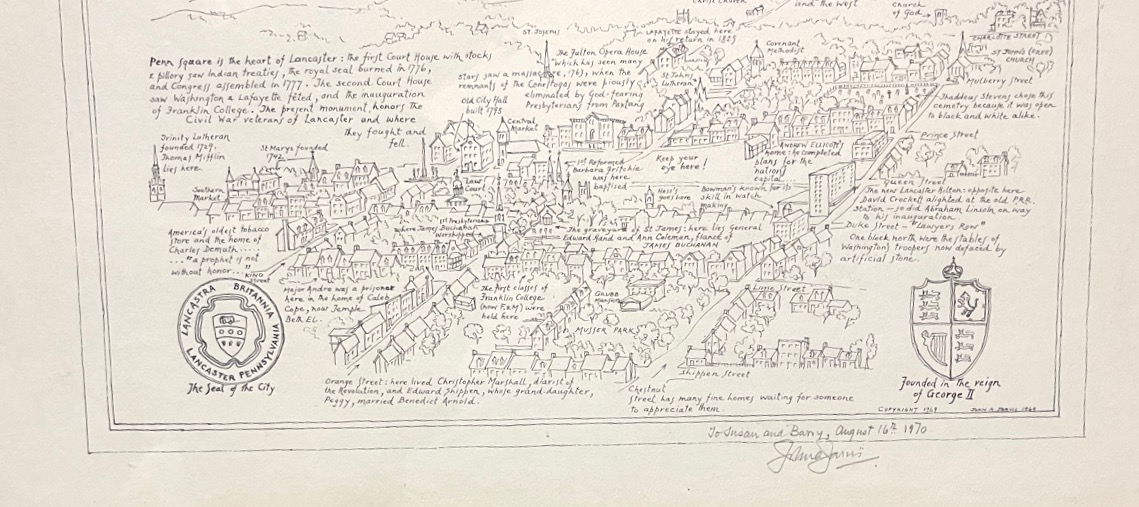 and the West
Church
of God
CHARLOTTE STREET
ST JOSEPHS
LAFAYETTE stayed here
on his return in 1825
Penn Square is the heart of Lancaster: the first Court House with stocks
& pillory saw Indian treaties, the royal seal burned in 1776,
and Congress assembled in 1777. The second Court House
saw Washington & Lafayette fêted, and the inauguration
of Franklin College. The present monument honors the
Civil War veterans of Lancaster and where
they fought and
fell.
The Fulton Opera House
which has seen many
stars saw a massacre, 1763, when the
remnants of the Conestogas were piously
eliminated by God-fearing
Presbyterians from Paxtang
Covenant
Methodist
St Johns
Lutheran
CHURCH
Mulberry Street
Thaddeus Stevens chose this
cemetery because it was open
to black and white alike.
Old City Hall
built 1795
Central
Market
Prince Street
Trinity Lutheran
founded 1729.
Thomas Mifflin
lies here
St Marys founded
1742
ANDREW ELLICOTT'S
home: he completed
plans for the
nation's
capital
1st Reformed
Barbara Fritchie
was here
baptised
Keep your
eye here!
Southern
Market
Law
Court
Hess's
goes here
Bowman's known for its
skill in watch
making
Queen Street
The new Lancaster Hilton: opposite here
David Crockett alighted at the old P.R.R.
Station — so did Abraham Lincoln on way
to his inauguration
Duke Street — "Lawyers Row"
One block north were the stables of
Washington's troopers now defaced by
artificial stone.
1st Presbyterian
where James Buchanan
worshipped
The graveyard of St James: here lies General
Edward Hand and Ann Coleman, fiancée of
JAMES BUCHANAN
America's oldest tobacco
store and the home of
Charles Demuth.....
...."a prophet is not
without honor..."
KING
Street
Major André was a prisoner
here in the home of Caleb
Cope, now Temple
Beth El.
The first classes of
Franklin College
(now F&M) were
held here
GRUBB
Mansion
Lime Street
MUSSER PARK
LANCASTRA BRITANNIA
LANCASTER PENNSYLVANIA
The Seal of the City
Shippen Street
Orange Street: here lived Christopher Marshall, diarist of
the Revolution, and Edward Shippen, whose grand-daughter,
Peggy, married Benedict Arnold.
Chestnut
Street has many fine homes waiting for someone
to appreciate them.
Founded in the reign
of George II
COPYRIGHT 1969
To Susan and Barry, August 16th 1970